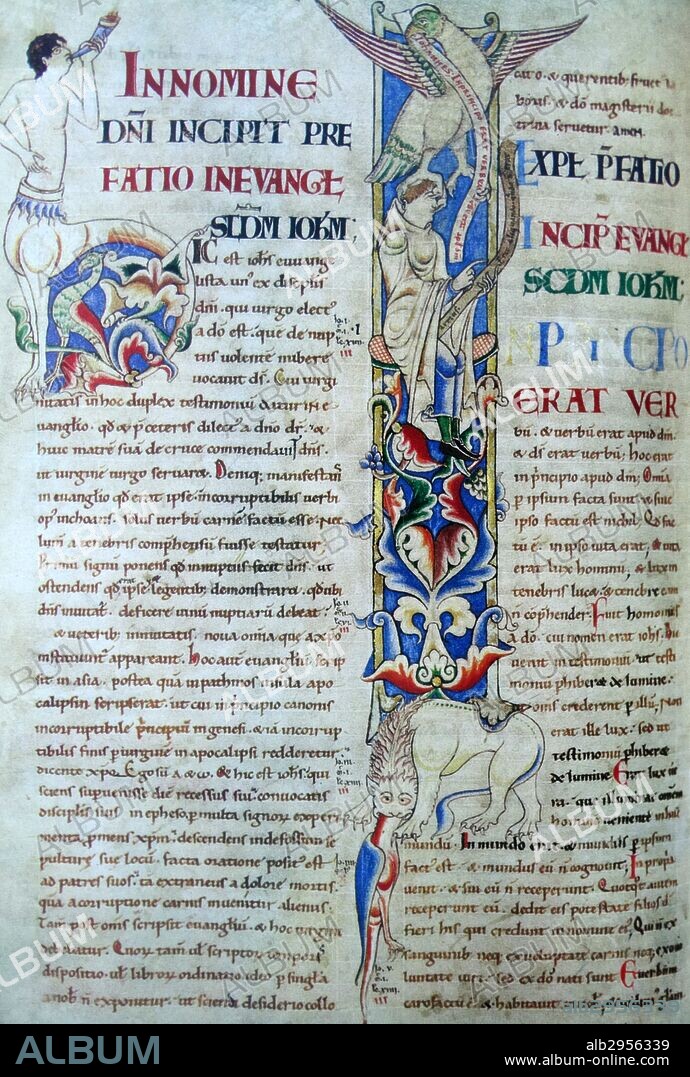 INNOMINE
DÑI INCIPIT PRE
FATIO INEVANGE
SCDM IOHM;
IC est iohs euuange
lista un' ex discipuis
dñi. qui uirgo electe
a dõ est. que de nup
tiis uolente nubere
uocauit ds. Cui uirgi
nitatis in hoc duplex testimoniũ datur in e
uanglio. qd & p̃ ceteris dilect' a dño dr̃. &
huic matrẽ suã de cruce commendauit dñs.
ut uirgine uirgo seruaret. Deniq; manifestans
in euanglio qd erat ipse. incorruptibilis uerbi
op' inchoans. solus uerbũ carnẽ factũ esse. nec
lumen a tenebris comp̃hensũ fuisse testatur.
Primũ signũ ponens qd in nuptiis fecit dñs. ut
ostendens qd erat ipse. legentib; demonstraret. qd ubi
dñs inuitat'. deficere uinũ nuptiarũ debeat.
& ueterib; inmutatis. noua omnia que a xp̃o
instituunt' appareant. Hoc autẽ euangliũ scrip
sit in asia. postea quã in pathmos insula apo
calipsin scripserat. ut cui in p̃ncipio canonis
incorruptibile p̃ncipiũ in genesi. & iã incorrup
tibilis finis p uirginẽ in apocalipsi redderetur.
dicente xp̃o. Ego sũ a & ω. & hic est iohs. qui
sciens superuenisse diem recessus sui. conuocatis
discipulis suis in epheso. p multa signorũ experi
menta. p̃mens xp̃m. descendens in defossum se
pulture sue locũ. facta oratione posit' est
ad patres suos. tã extraneus a dolore mortis.
quã a corruptione carnis inuenitur alienus.
Tam̃ post om̃s scripsit euangliũ. & hoc uirgini
debebatur. Quorũ tam̃ ul scriptorũ temporis
dispositio. ul librorũ ordinatio ideo p singla
a nob' ñ exponitur. ut sciendi desiderio collo
cato. & querentib; fruct' la
boris. & dõ magisterii doc
trina seruetur. amen.
EXPL P̃FATIO
INCIP̃ EVANGL
SCDM IOHM;
N PRINCIPIO
ERAT VER
bũ. & uerbũ erat apud dm̃.
& ds erat uerbũ; hoc erat
in p̃ncipio apud dm̃; Omia
p ipsum facta sunt & sine
ipso factũ est nichil; Qd fac
tũ ẽ. in ipso uita erat. & uita
erat lux hominũ. & lux in
tenebris lucet. & tenebre eam
ñ comp̃henderunt. Fuit homo mis
a dõ. cui nomen erat iohs. hic
uenit in testimoniũ. ut testi
moniũ phiberet de lumine.
omnes crederent p illũ. Non
erat ille lux. sed ut
testimoniũ phiberet
de lumine. Erat lux ue
ra. que illuminat om̃em
hominẽ uenientẽ in hũc
mundũ. In mundo erat. & mundus p ipsum
fact' est. & mundus eũ ñ cognouit; In p̃pria
uenit. & sui eũ ñ receperunt. Quotqt autem
receperunt eũ. dedit eis potestatẽ filios di
fieri. his qui credunt in nomine ei'. Qui ñ ex
sanguinib'. neq; ex uoluntate carnis. neq; ex uo
luntate uiri. sed ex dõ nati sunt. Et uerbum
caro factũ ẽ. & habitauit
ALBUM
ab2956339
www.album-online.com